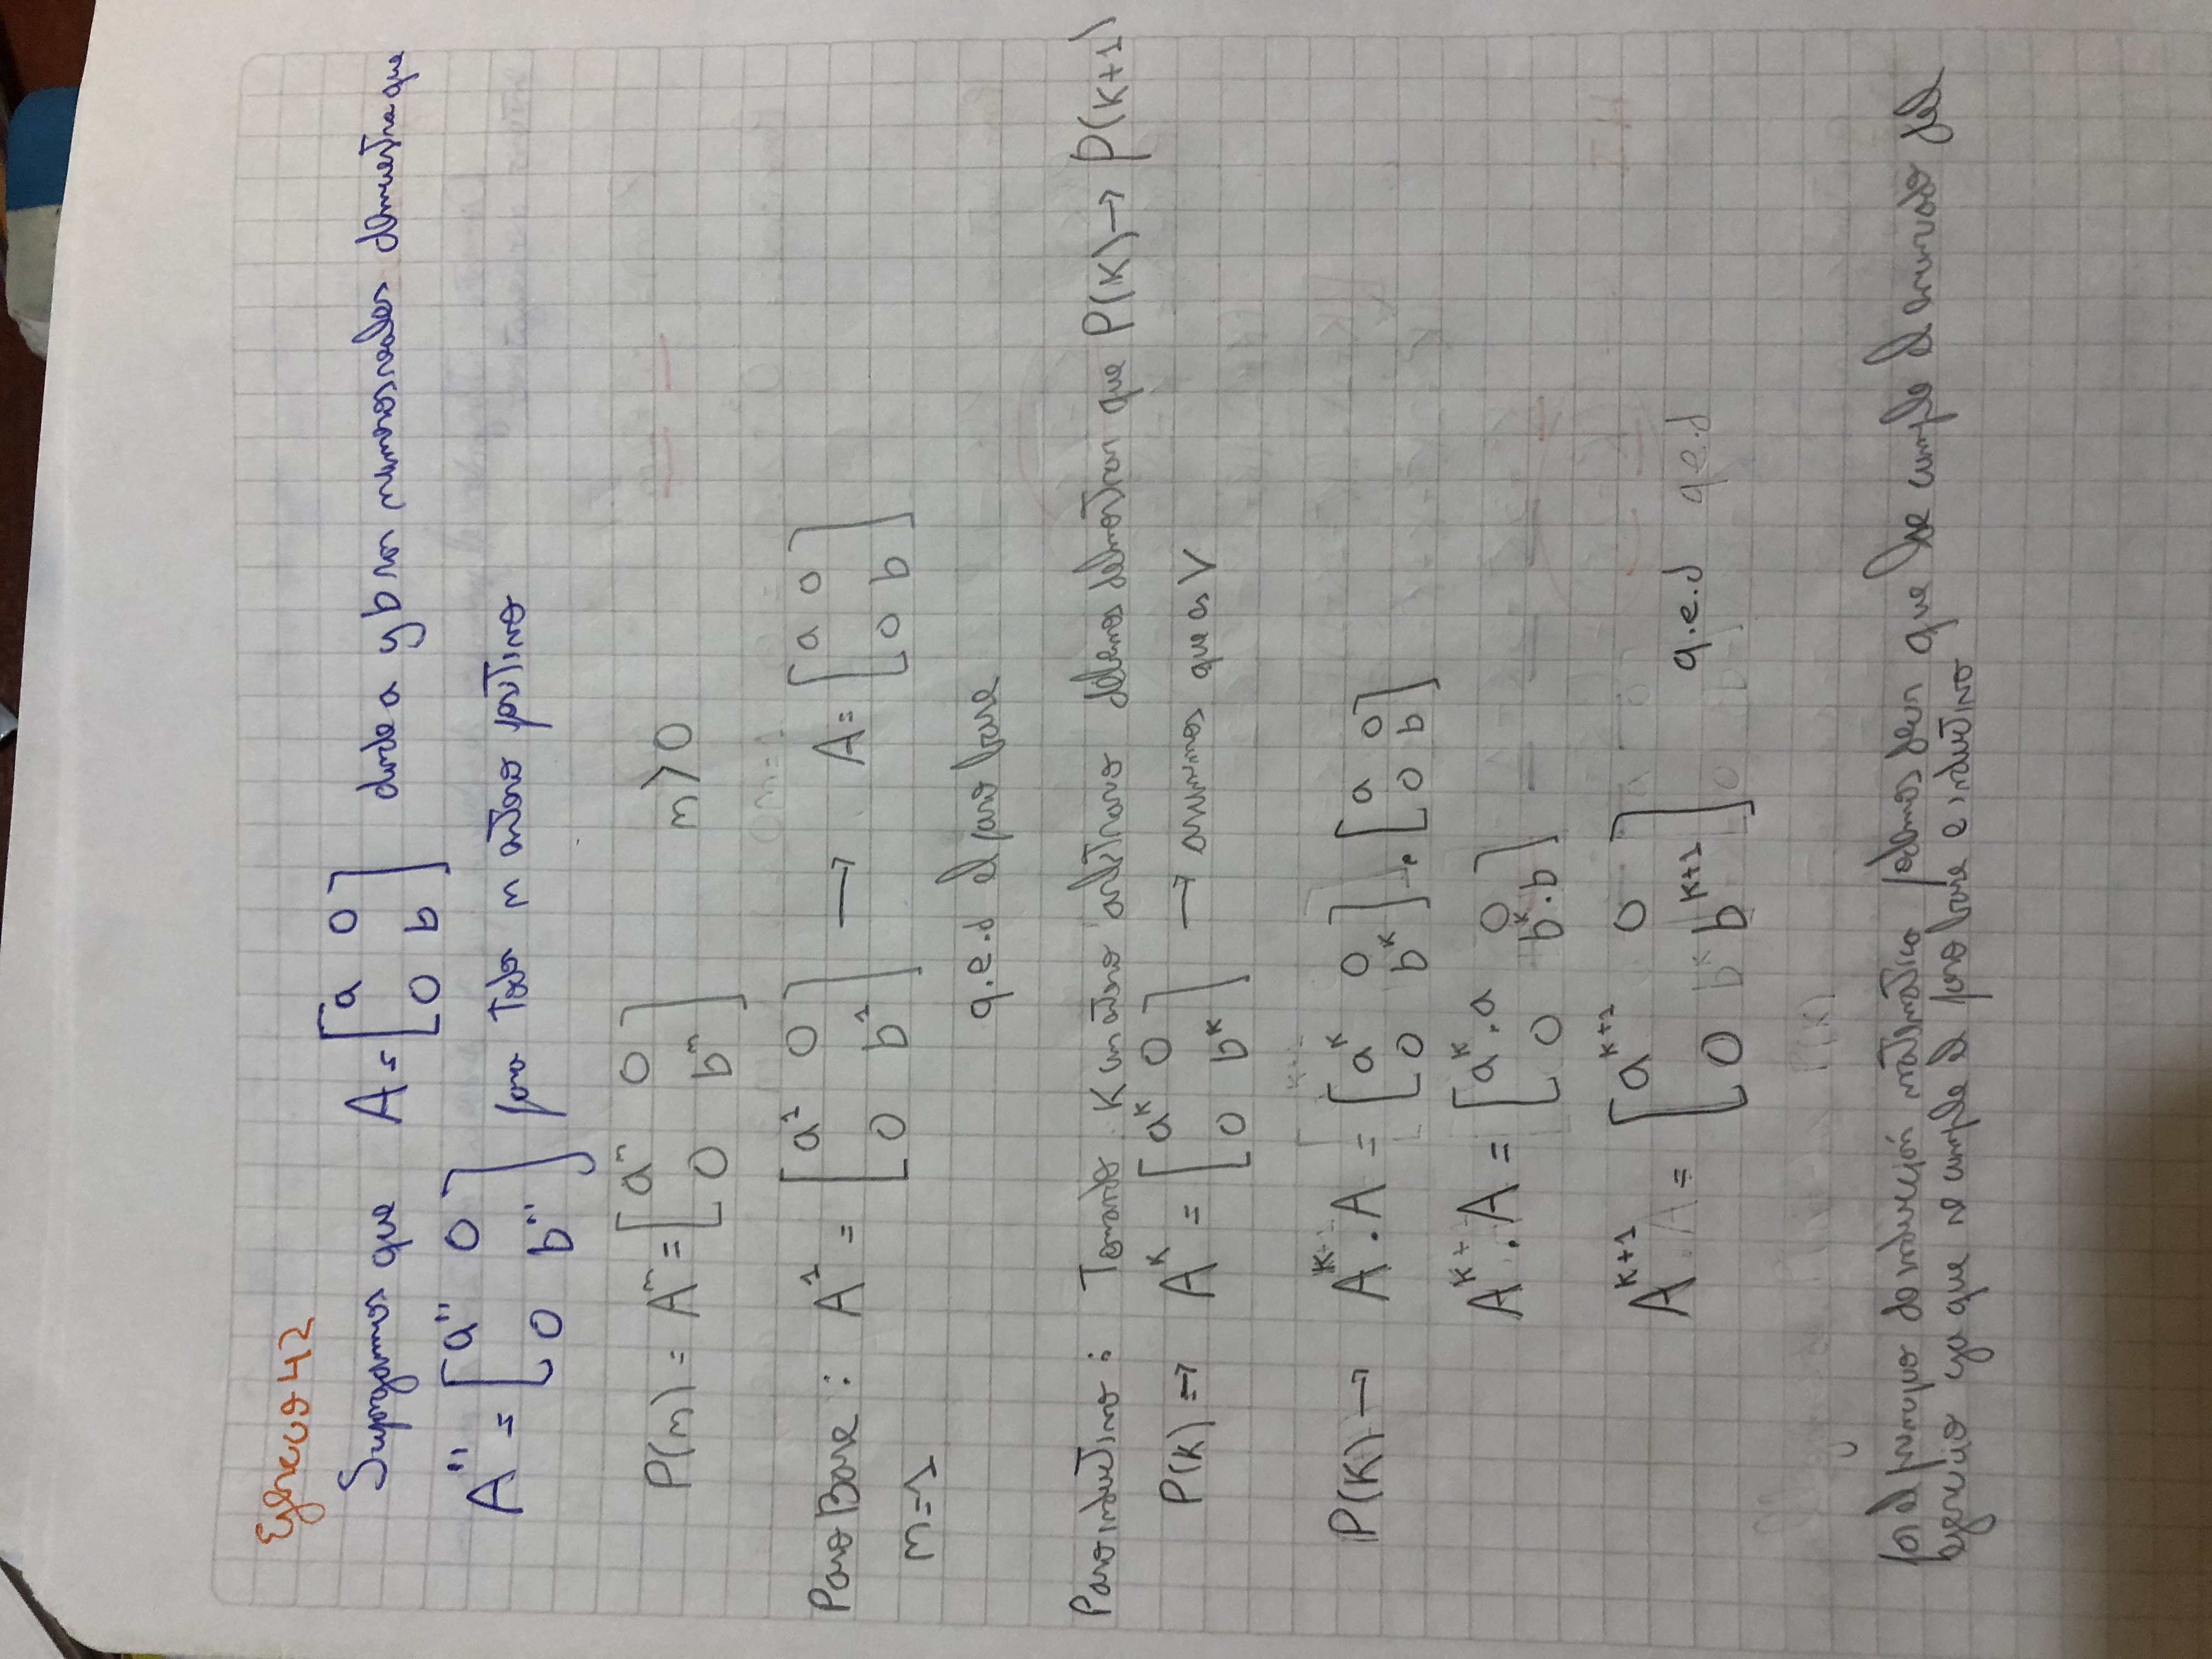 Ejercicio 42
Supongamos que A = [a 0; 0 b] donde a y b son numeros reales demuestra que
Aⁿ = [aⁿ 0; 0 bⁿ] para todo n entero positivo
P(n) = Aⁿ = [aⁿ 0; 0 bⁿ] n > 0
Paso Base : A¹ = [a¹ 0; 0 b¹] → A = [a 0; 0 b]
n=1
q.e.d el paso base
Paso inductivo : Tomando K un entero arbitrario debemos demostrar que P(K) → P(K+1)
P(K) ⇒ Aᴷ = [aᴷ 0; 0 bᴷ] → asumimos que es V
P(K) → Aᴷ . A = [aᴷ 0; 0 bᴷ] . [a 0; 0 b]
Aᴷ . A = [aᴷ . a 0; 0 bᴷ . b]
Aᴷ⁺¹ = [aᴷ⁺¹ 0; 0 bᴷ⁺¹] q.e.d q.e.d
P(K)
por el principio de inducción matematica podemos decir que se cumple el enunciado del
ejercicio ya que se cumple el paso base e inductivo